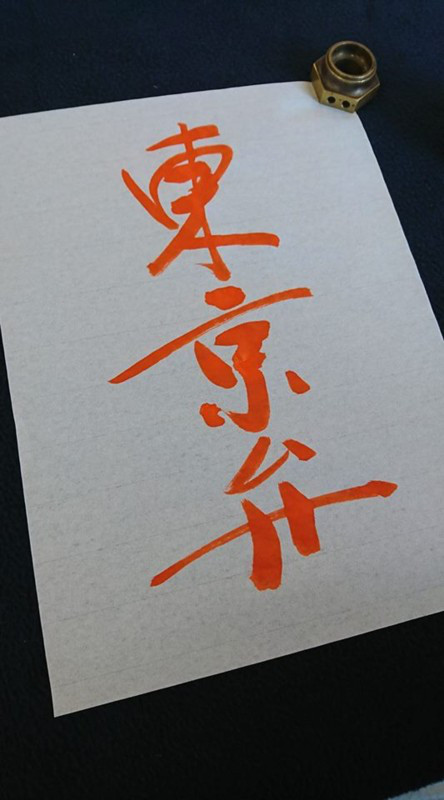 東京弁